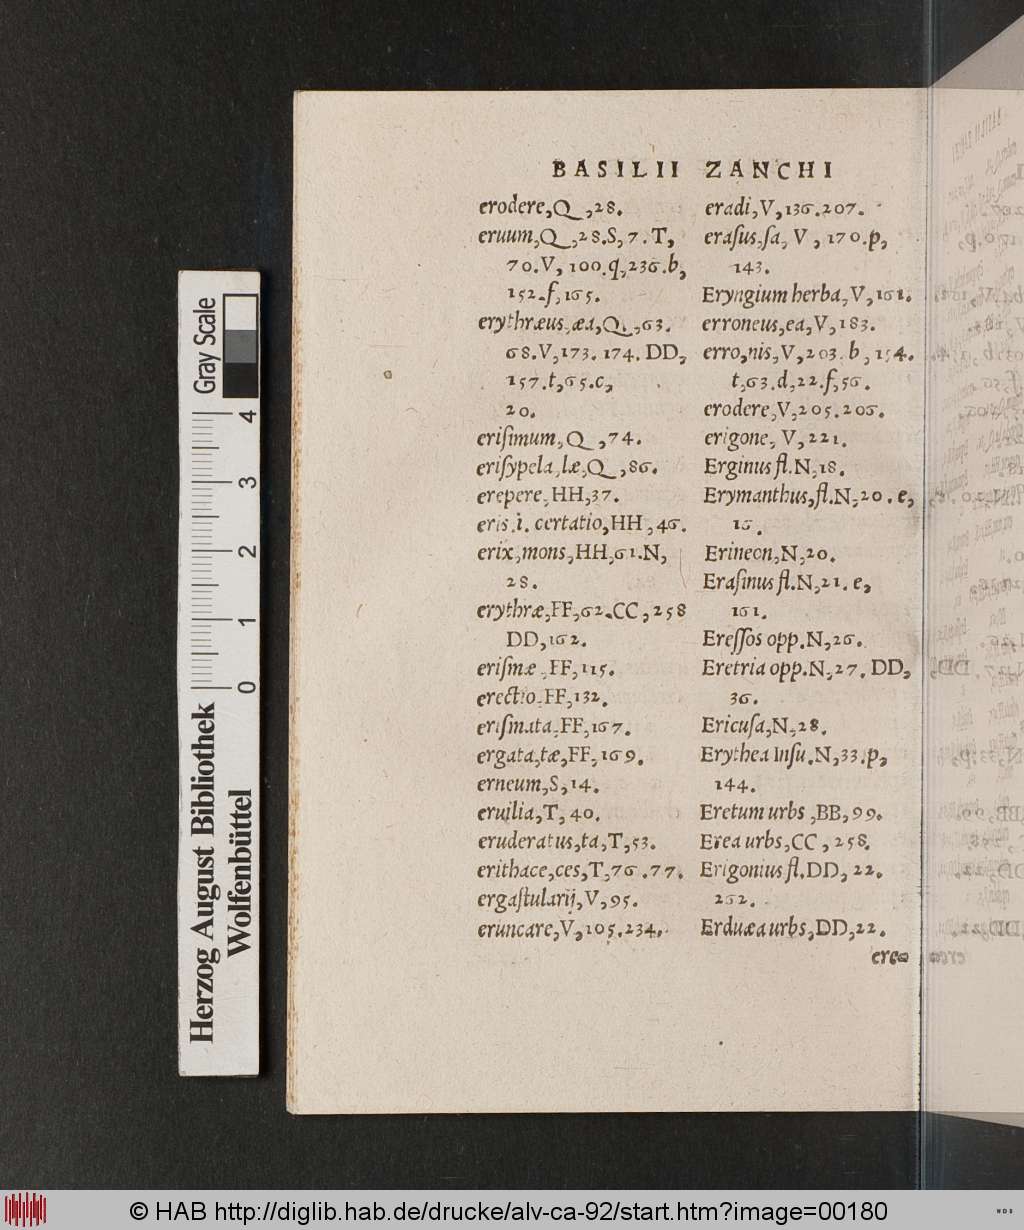 BASILII ZANCHI
erodere,Q,28.
eruum,Q,28.S,7.T,
70.V, 100.q,236.b,
152.f,165.
erythræus,æa,Q,63.
68.V,173.174.DD,
157.t,65.c,
20.
eriſimum,Q,74.
eriſypela,læ,Q,86.
erepere,HH,37.
eris.i. certatio,HH,46.
erix,mons,HH,61.N,
28.
erythræ,FF,62.CC,258
DD,162.
eriſmæ,FF,115.
erectio,FF,132.
eriſmata,FF,167.
ergata,tæ,FF,169.
erneum,S,14.
eruilia,T,40.
eruderatus,ta,T,53.
erithace,ces,T,76.77.
ergaſtularij,V,95.
eruncare,V,105.234.
eradi,V,136.207.
eraſus,ſa, V, 170.p,
143.
Eryngium herba,V,161.
erroneus,ea,V,183.
erro,nis,V,203.b,154.
t,63.d,22.f,56.
erodere,V,205.206.
erigone, V,221.
Erginus fl.N,18.
Erymanthus,fl.N,20.e,
16.
Erineon,N,20.
Eraſinus fl.N,21.e,
161.
Ereſſos opp.N,26.
Eretria opp.N,27.DD,
36.
Ericuſa,N,28.
Erythea Inſu.N,33.p,
144.
Eretum urbs,BB,99.
Erea urbs,CC,258.
Erigonius fl.DD,22.
262.
Erduæa urbs,DD,22.
Herzog August Bibliothek
Wolfenbüttel
Gray Scale
0 1 2 3 4
© HAB http://diglib.hab.de/drucke/alv-ca-92/start.htm?image=00180